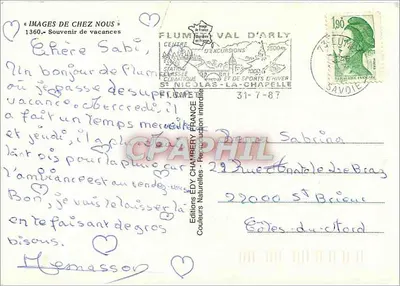 « IMAGES DE CHEZ NOUS »
1360.- Souvenir de vacances
Chère Sabi,
Un bonjour de Flum
où je passe de sup
vacance. Mercredi, il
a fait un temps merveill
et jeudi, il a
pour la pluie
l'ambiance est au rendez vous
Bon, je vais te laisser là
en te faisant de gros
bisous.
FLUMET VAL D'ARLY
CENTRE
D'EXCURSIONS
STATION
CLASSEE
CLIMATIQUE
ET DE SPORTS D'HIVER
ST NICOLAS-LA-CHAPELLE
FLUMET 31-7-87
SAVOIE
1,90
Editions EDY CHAMBERY FRANCE
Couleurs Naturelles - Reproduction interdite
CPAPHIL
Sabrina
29 Rue Anatole Le Braz
22000 St Brieuc
Côtes-du-Nord